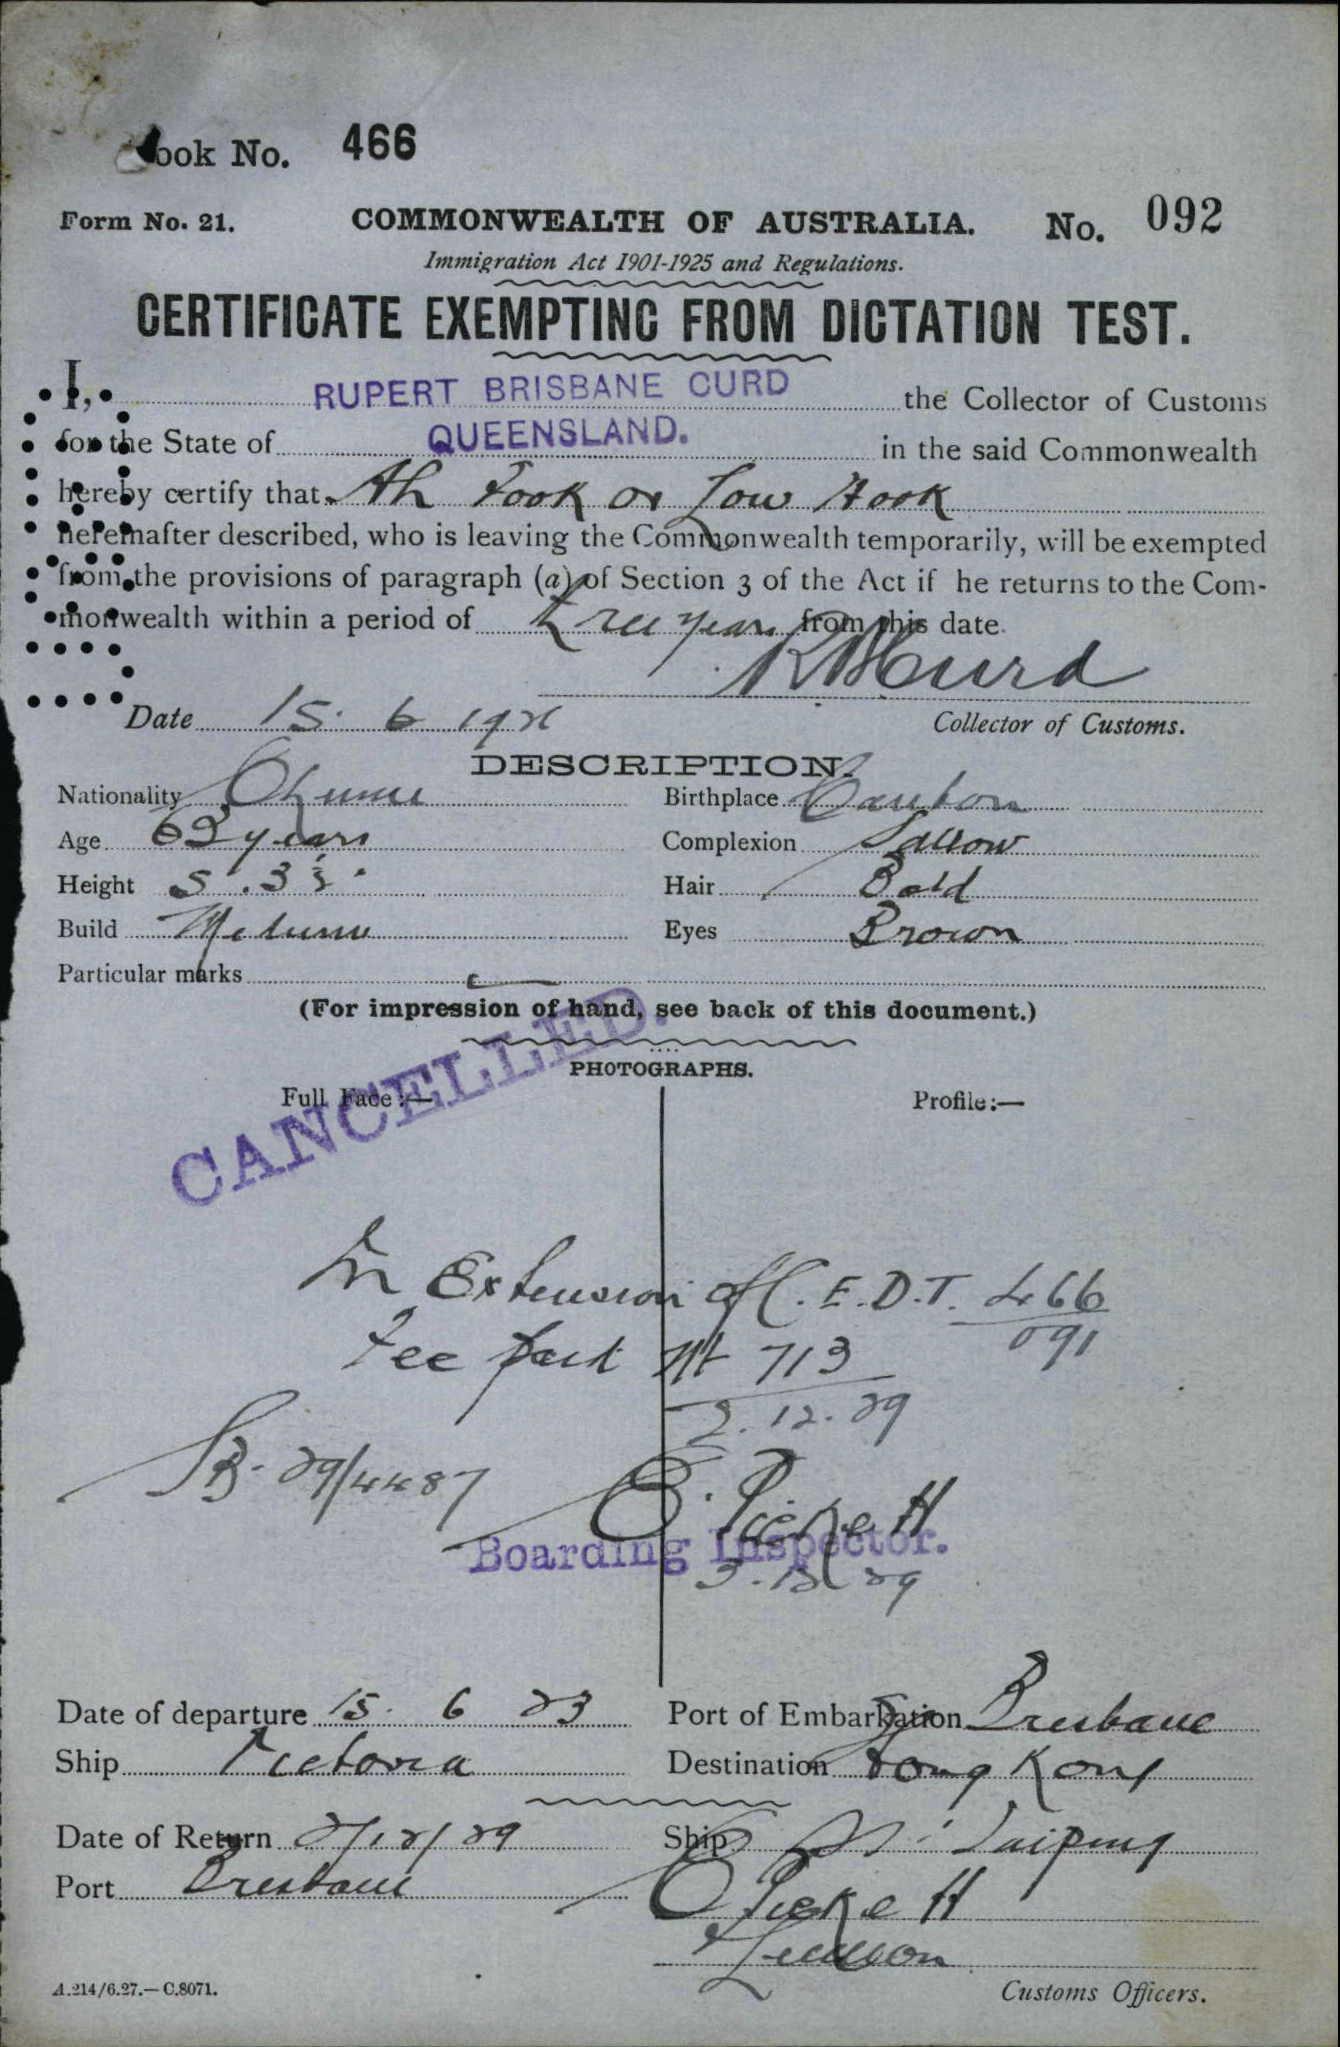 ook No. 466
Form No. 21. COMMONWEALTH OF AUSTRALIA. No. 092
Immigration Act 1901-1925 and Regulations.
CERTIFICATE EXEMPTING FROM DICTATION TEST.
I, RUPERT BRISBANE CURD the Collector of Customs
for the State of QUEENSLAND. in the said Commonwealth
hereby certify that Ah Fook or Low Hook
hereinafter described, who is leaving the Commonwealth temporarily, will be exempted
from the provisions of paragraph (a) of Section 3 of the Act if he returns to the Com-
monwealth within a period of three years from this date.
R B Curd
Date 15. 6 1926 Collector of Customs.
DESCRIPTION.
Nationality Chinese Birthplace Canton
Age 63 years Complexion Sallow
Height 5'. 3½" Hair Bald
Build Medium Eyes Brown
Particular marks
(For impression of hand, see back of this document.)
CANCELLED.
PHOTOGRAPHS.
Full Face:— Profile:—
In Extension of C.E.D.T. 466/091
Fee paid 713
2.12.29
29/4487
E. Pickett
Boarding Inspector.
3.12.29
Date of departure 15. 6 23 Port of Embarkation Brisbane
Ship Victoria Destination Hong Kong
Date of Return 2/12/29 Ship Taiping
Port Brisbane E Pickett
Customs Officers.
A.214/6.27.—C.8071.